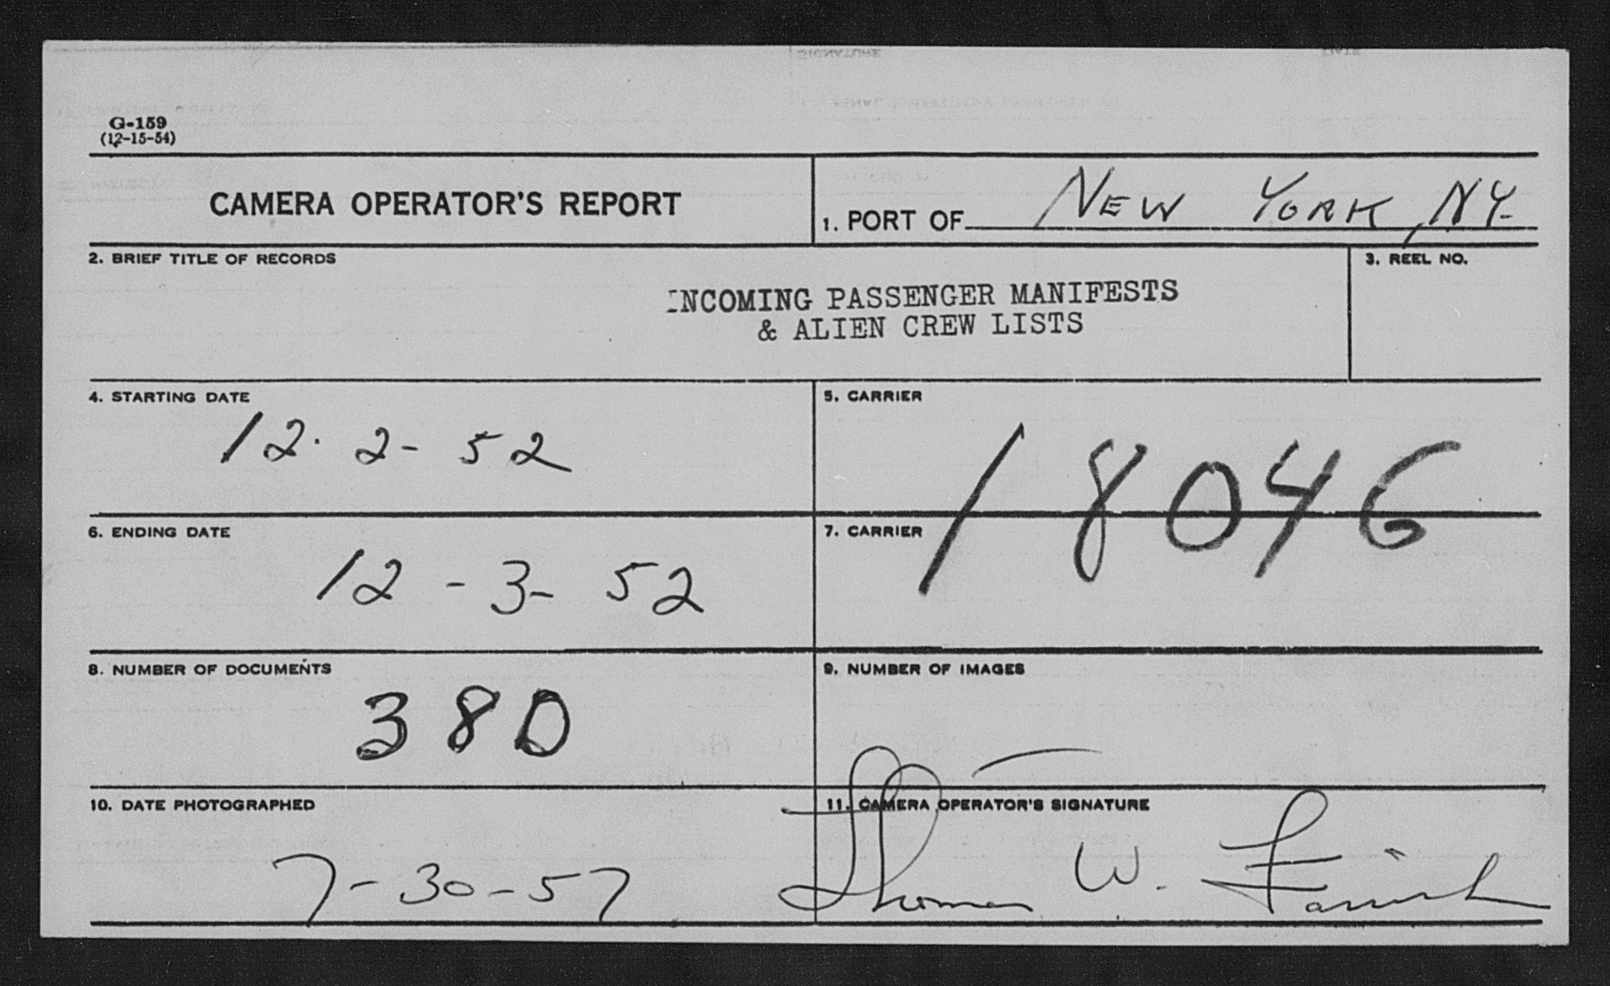 G-159
(12-15-54)
CAMERA OPERATOR'S REPORT
1. PORT OF New York, NY.
2. BRIEF TITLE OF RECORDS
INCOMING PASSENGER MANIFESTS
& ALIEN CREW LISTS
3. REEL NO.
4. STARTING DATE
12. 2- 52
5. CARRIER
18046
6. ENDING DATE
12 - 3- 52
7. CARRIER
8. NUMBER OF DOCUMENTS
380
9. NUMBER OF IMAGES
10. DATE PHOTOGRAPHED
7-30-57
11. CAMERA OPERATOR'S SIGNATURE
Thomas W.